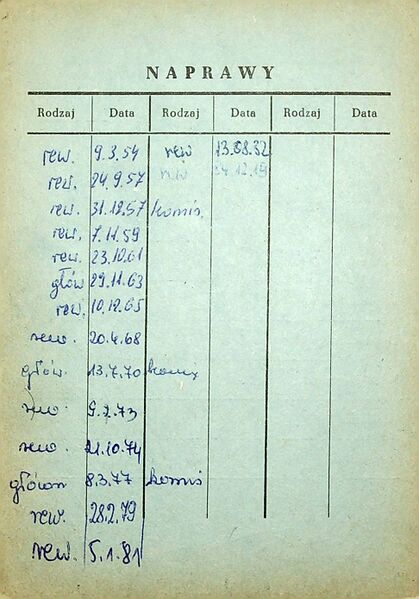 NAPRAWY
Rodzaj Data Rodzaj Data Rodzaj Data
rew. 9.3.54 rew 13.08.82
rew. 24.9.57 rew 24.12.19
rew. 31.12.57 komis.
rew. 7.11.59
rew. 23.10.61
głów 29.11.63
rew. 10.12.65
rew. 20.4.68
głów. 13.7.70 komis
rew. 9.7.73
rew. 21.10.74
główn 8.3.77 komis
rew. 28.2.79
rew. 5.1.81